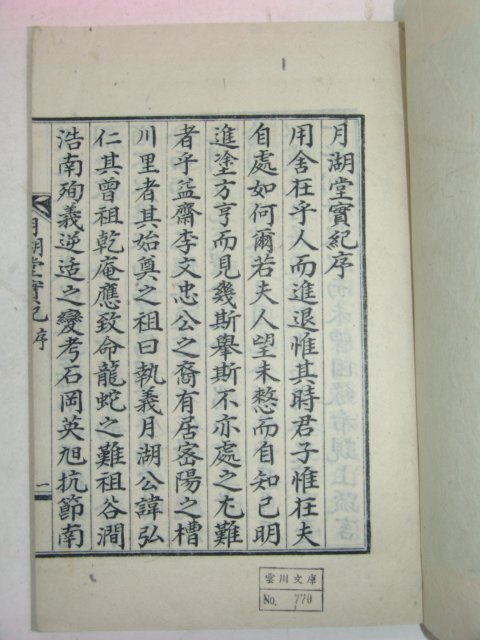 月湖堂實紀序
用舍在乎人而進退惟其時君子惟在夫
自處如何爾若夫人望未愸而自知已明
進塗方亨而見幾斯舉斯不亦處之尤難
者乎益齋李文忠公之裔有居密陽之槽
川里者其始奠之祖曰執義月湖公諱弘
仁其曾祖乾庵應致命龍蛇之難祖谷澗
浩南殉義逆适之變考石岡英旭抗節南
月湖堂實紀 序
一
雲川文庫
No. 770